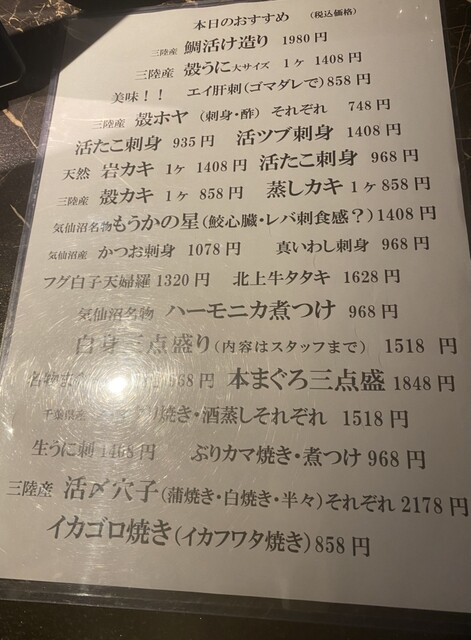 本日のおすすめ (税込価格)
三陸産 鯛活け造り 1980円
三陸産 殻うに大サイズ 1ヶ 1408円
美味!! エイ肝刺(ゴマダレで)858円
三陸産 殻ホヤ (刺身・酢) それぞれ 748円
活たこ刺身 935円 活ツブ刺身 1408円
天然 岩カキ 1ヶ 1408円 活たこ刺身 968円
三陸産 殻カキ 1ヶ 858円 蒸しカキ 1ヶ 858円
気仙沼名物もうかの星(鮫心臓・レバ刺食感?)1408円
気仙沼産 かつお刺身 1078円 真いわし刺身 968円
フグ白子天婦羅 1320円 北上牛タタキ 1628円
気仙沼名物 ハーモニカ煮つけ 968円
白身三点盛り(内容はスタッフまで) 1518円
68円 本まぐろ三点盛 1848円
千葉県産 焼き・酒蒸しそれぞれ 1518円
生うに刺 1408円 ぶりカマ焼き・煮つけ 968円
三陸産 活〆穴子(蒲焼き・白焼き・半々)それぞれ 2178円
イカゴロ焼き(イカフワタ焼き)858円